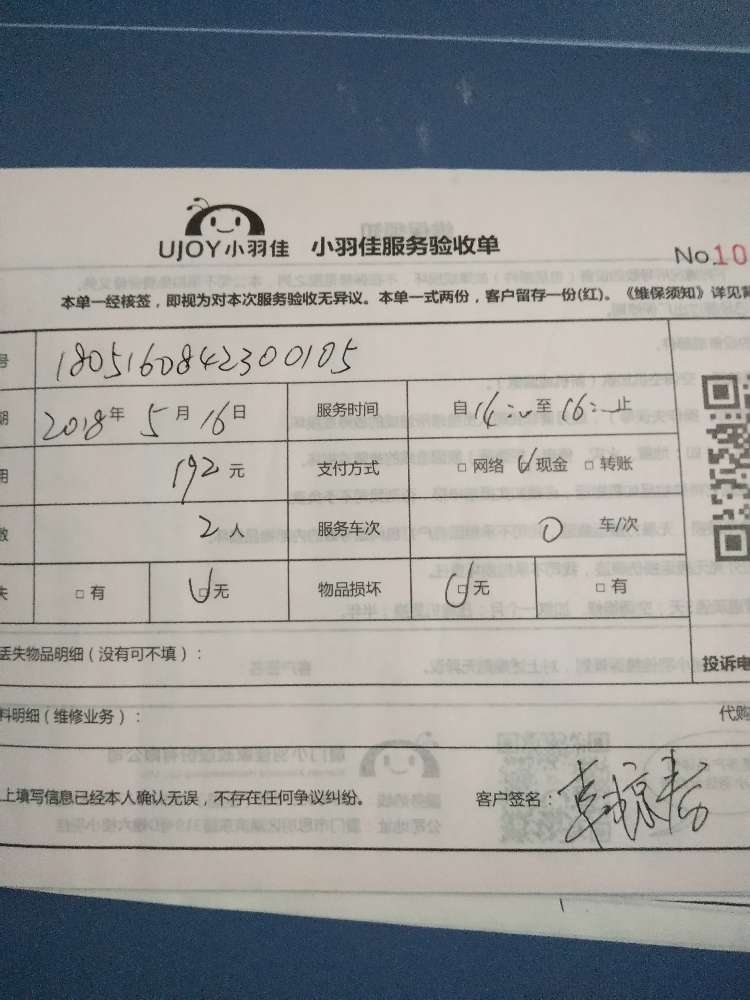 UJOY小羽佳 小羽佳服务验收单
No.10
本单一经核签，即视为对本次服务验收无异议。本单一式两份，客户留存一份(红)。《维保须知》详见背
号 180516084230010​5
期 2018年5月16日 服务时间 自14:00至16:00止
用 192元 支付方式 □网络 □现金 □转账
数 2人 服务车次 0 车/次
失 □有 □无 物品损坏 □无 □有
丢失物品明细（没有可不填）： 投诉电
料明细（维修业务）： 代购
上填写信息已经本人确认无误，不存在任何争议纠纷。 客户签名：